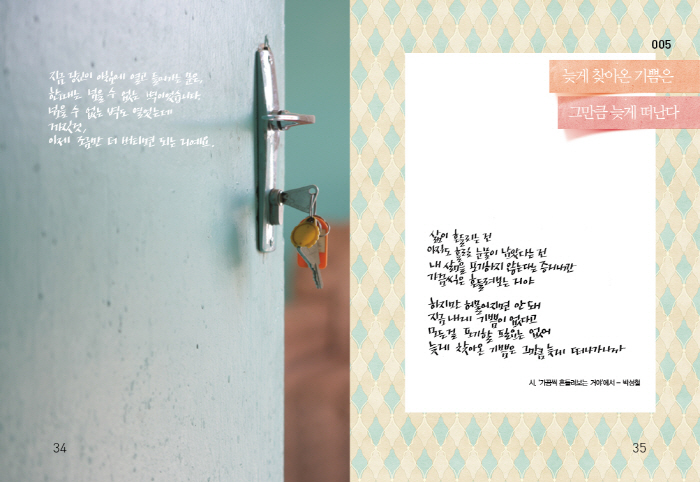 지금 당신이 아무렇게 열고 들어가는 문도,
한때는 넘을 수 없는 벽이었습니다.
넘을 수 없는 벽도 열었는데
까짓것,
이제 조금만 더 버티면 되는 거예요.
34
005
늦게 찾아온 기쁨은
그만큼 늦게 떠난다
삶이 흔들리는 건
아직도 흘릴 눈물이 남았다는 건
내 삶을 포기하지 않는다는 증거니깐
가끔씩은 흔들려보는 거야
하지만 허물어지면 안 돼
지금 내게 기쁨이 없다고
모든걸 포기할 필요는 없어
늦게 찾아온 기쁨은 그만큼 늦게 떠나가니까
시, '가끔씩 흔들려보는 거야'에서 – 박성철
35